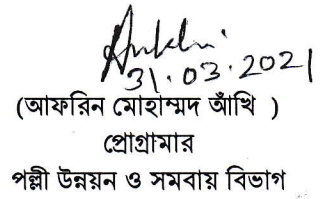 31.03.2021
(আফরিন মোহাম্মদ আঁখি )
প্রোগ্রামার
পল্লী উন্নয়ন ও সমবায় বিভাগ